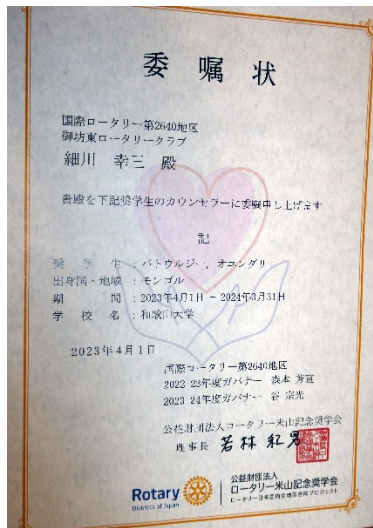 委嘱状
国際ロータリー第2640地区
御坊東ロータリークラブ
細川 幸三 殿
貴殿を下記奨学生のカウンセラーに委嘱申し上げます
記
奨学生:バトウルジー,オユンダリ
出身国・地域:モンゴル
期間:2023年4月1日-2024年3月31日
学校名:和歌山大学
2023年4月1日
国際ロータリー第2640地区
2022-23年度ガバナー 森本 芳宣
2023-24年度ガバナー 谷 宗光
公益財団法人ロータリー米山記念奨学会
理事長 若林 紀男
Rotary
Districts of Japan
公益財団法人
ロータリー米山記念奨学会
ロータリー日本国内全地区合同プロジェクト